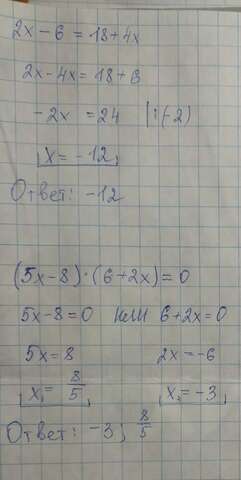 2x - 6 = 18 + 4x
2x - 4x = 18 + 6
-2x = 24 | : (-2)
x = -12
Ответ: -12
(5x - 8) · (6 + 2x) = 0
5x - 8 = 0 или 6 + 2x = 0
5x = 8 2x = -6
x = 8/5 x = -3
Ответ: -3; 8/5